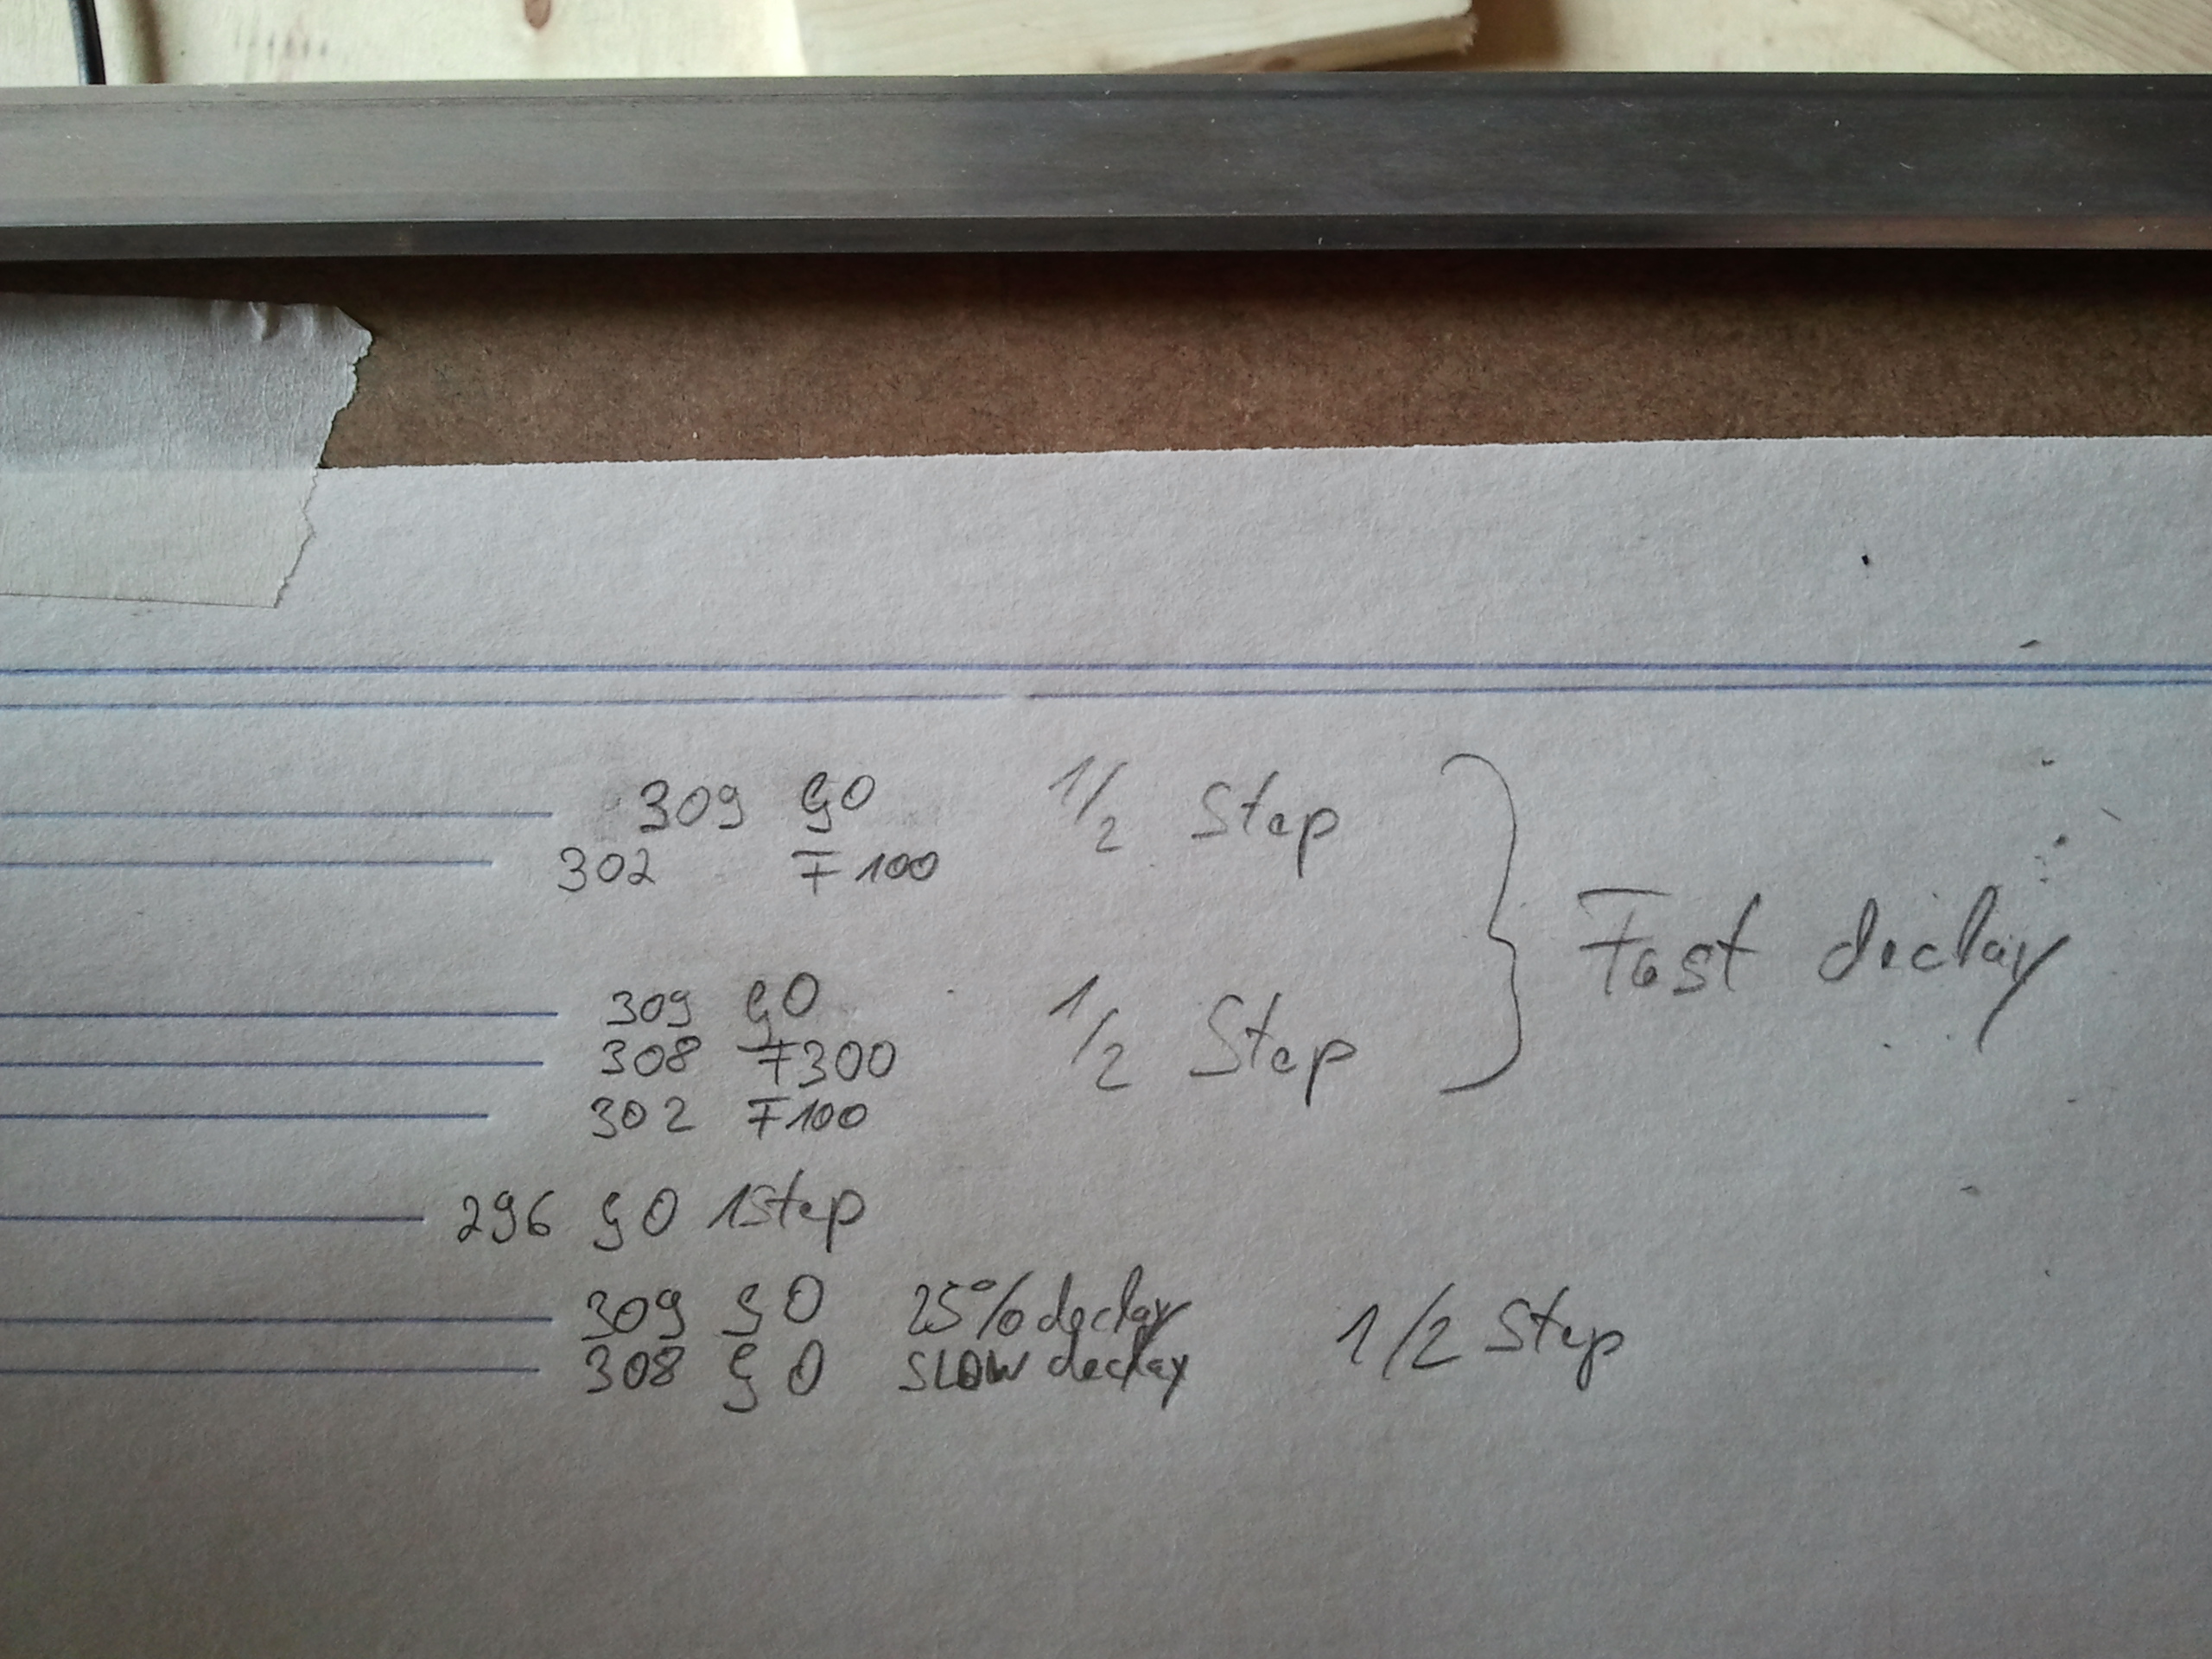 309 G0 1/2 Step
302 F100
Fast declay
309 G0 1/2 Step
308 F300
302 F100
296 G0 1Step
309 G0 25% declay 1/2 Step
308 G0 SLOW declay